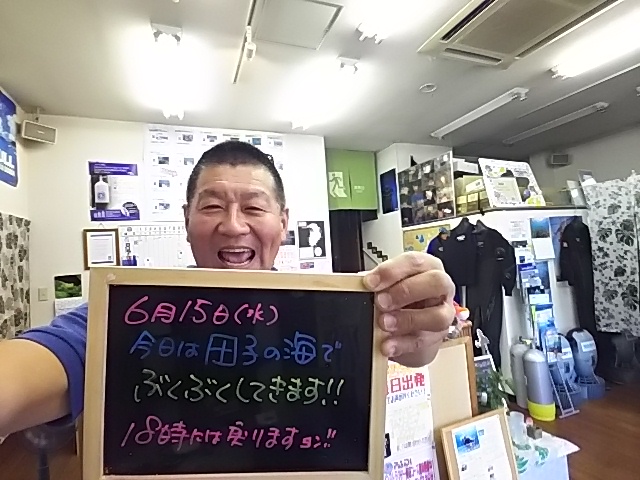 6月15日(水)
今日は田子の海で
ぶくぶくしてきます!!
18時には戻りますョン!!
日出発